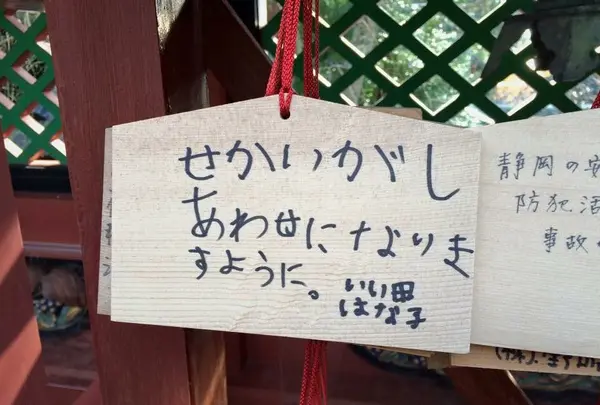 せかいがし
あわせになりま
すように。
いい田
はな子
静岡の安
防犯活
事故
(株)